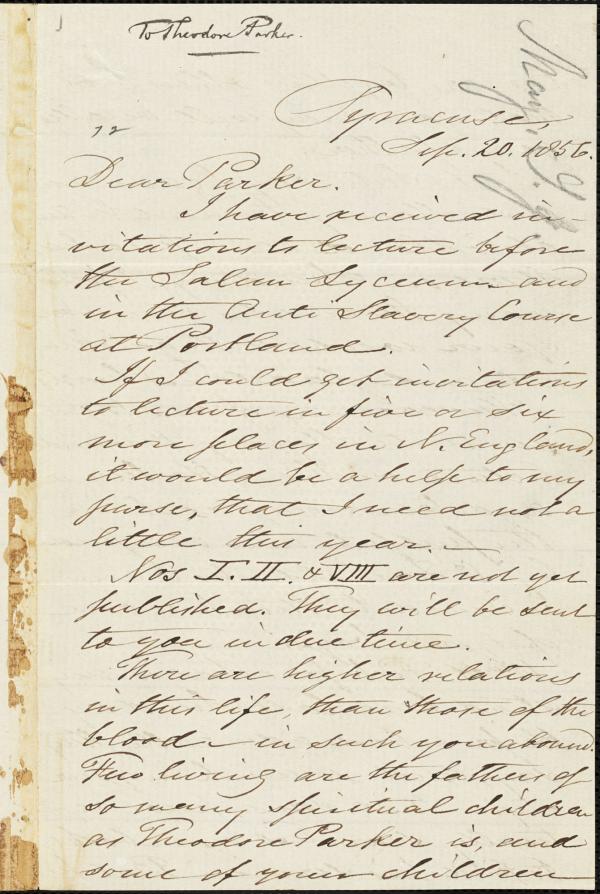 To Theodore Parker.
Syracuse,
Sep. 20. 1856.
Dear Parker.
I have received in-
vitations to lecture before
the Salem Lyceum and
in the Anti Slavery Course
at Portland.
If I could get invitations
to lecture in five or six
more places in N. England,
it would be a help to my
purse, that I need not a
little this year.—
Nos I. II. & VIII are not yet
published. They will be sent
to you in due time.
There are higher relations
in this life, than those of the
blood — in such you abound.
Few living are the fathers of
so many spiritual children
as Theodore Parker is, and
some of your children